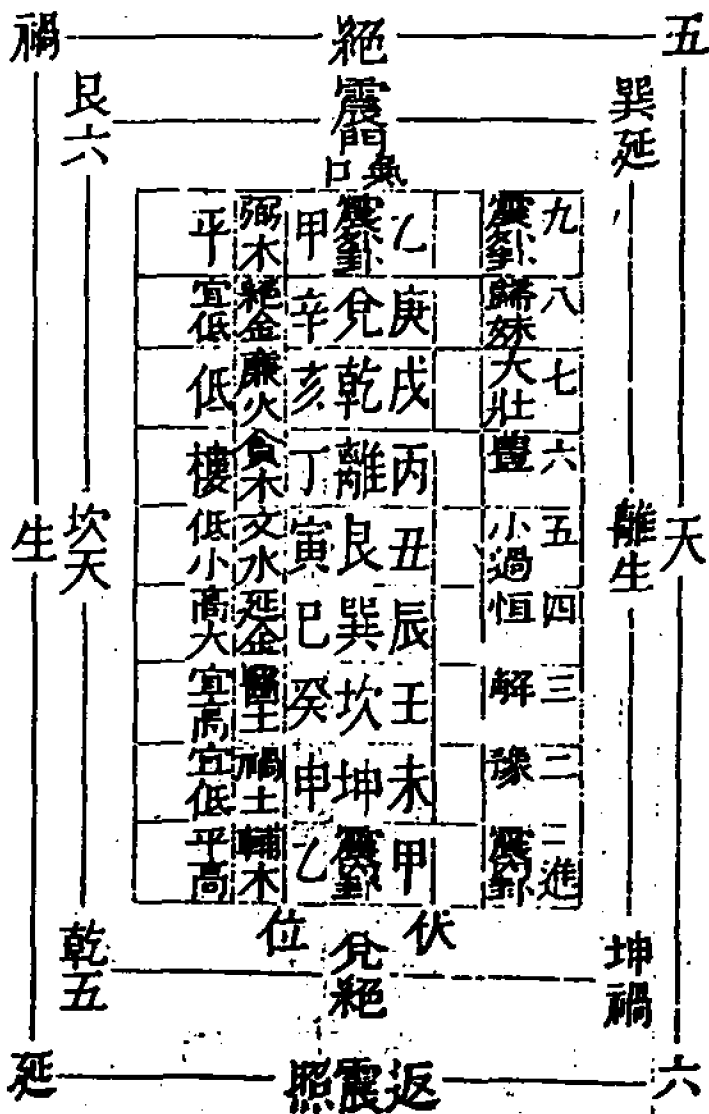 五 絕 禍
巽延 震門 艮六
口
九 震外卦 乙 震外卦 甲 弼木 平
八 歸妹 庚 兌 辛 絕金 宜低
七 大壯 戌 乾 亥 廉火 低
六 豐 丙 離 丁 貪木 樓
五 小過 丑 艮 寅 文水 低小
四 恒 辰 巽 巳 延金 高大
三 解 壬 坎 癸 土 宜高
二 豫 未 坤 申 禍土 宜低
二進 震內卦 甲 震內卦 乙 輔木 平高
天 離生 坎天 生
伏位
坤禍 兌絕 乾五
六 返震照 延